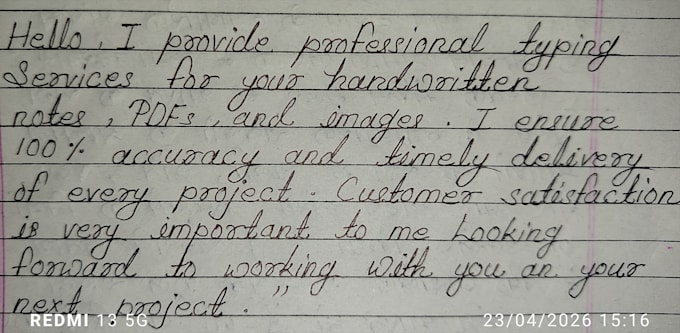 Hello, I provide professional typing
Services for your handwritten
notes, PDFs, and images. I ensure
100% accuracy and timely delivery
of every project. Customer satisfaction
is very important to me Looking
forward to working with you on your
next project."
REDMI 13 5G
23/04/2026 15:16